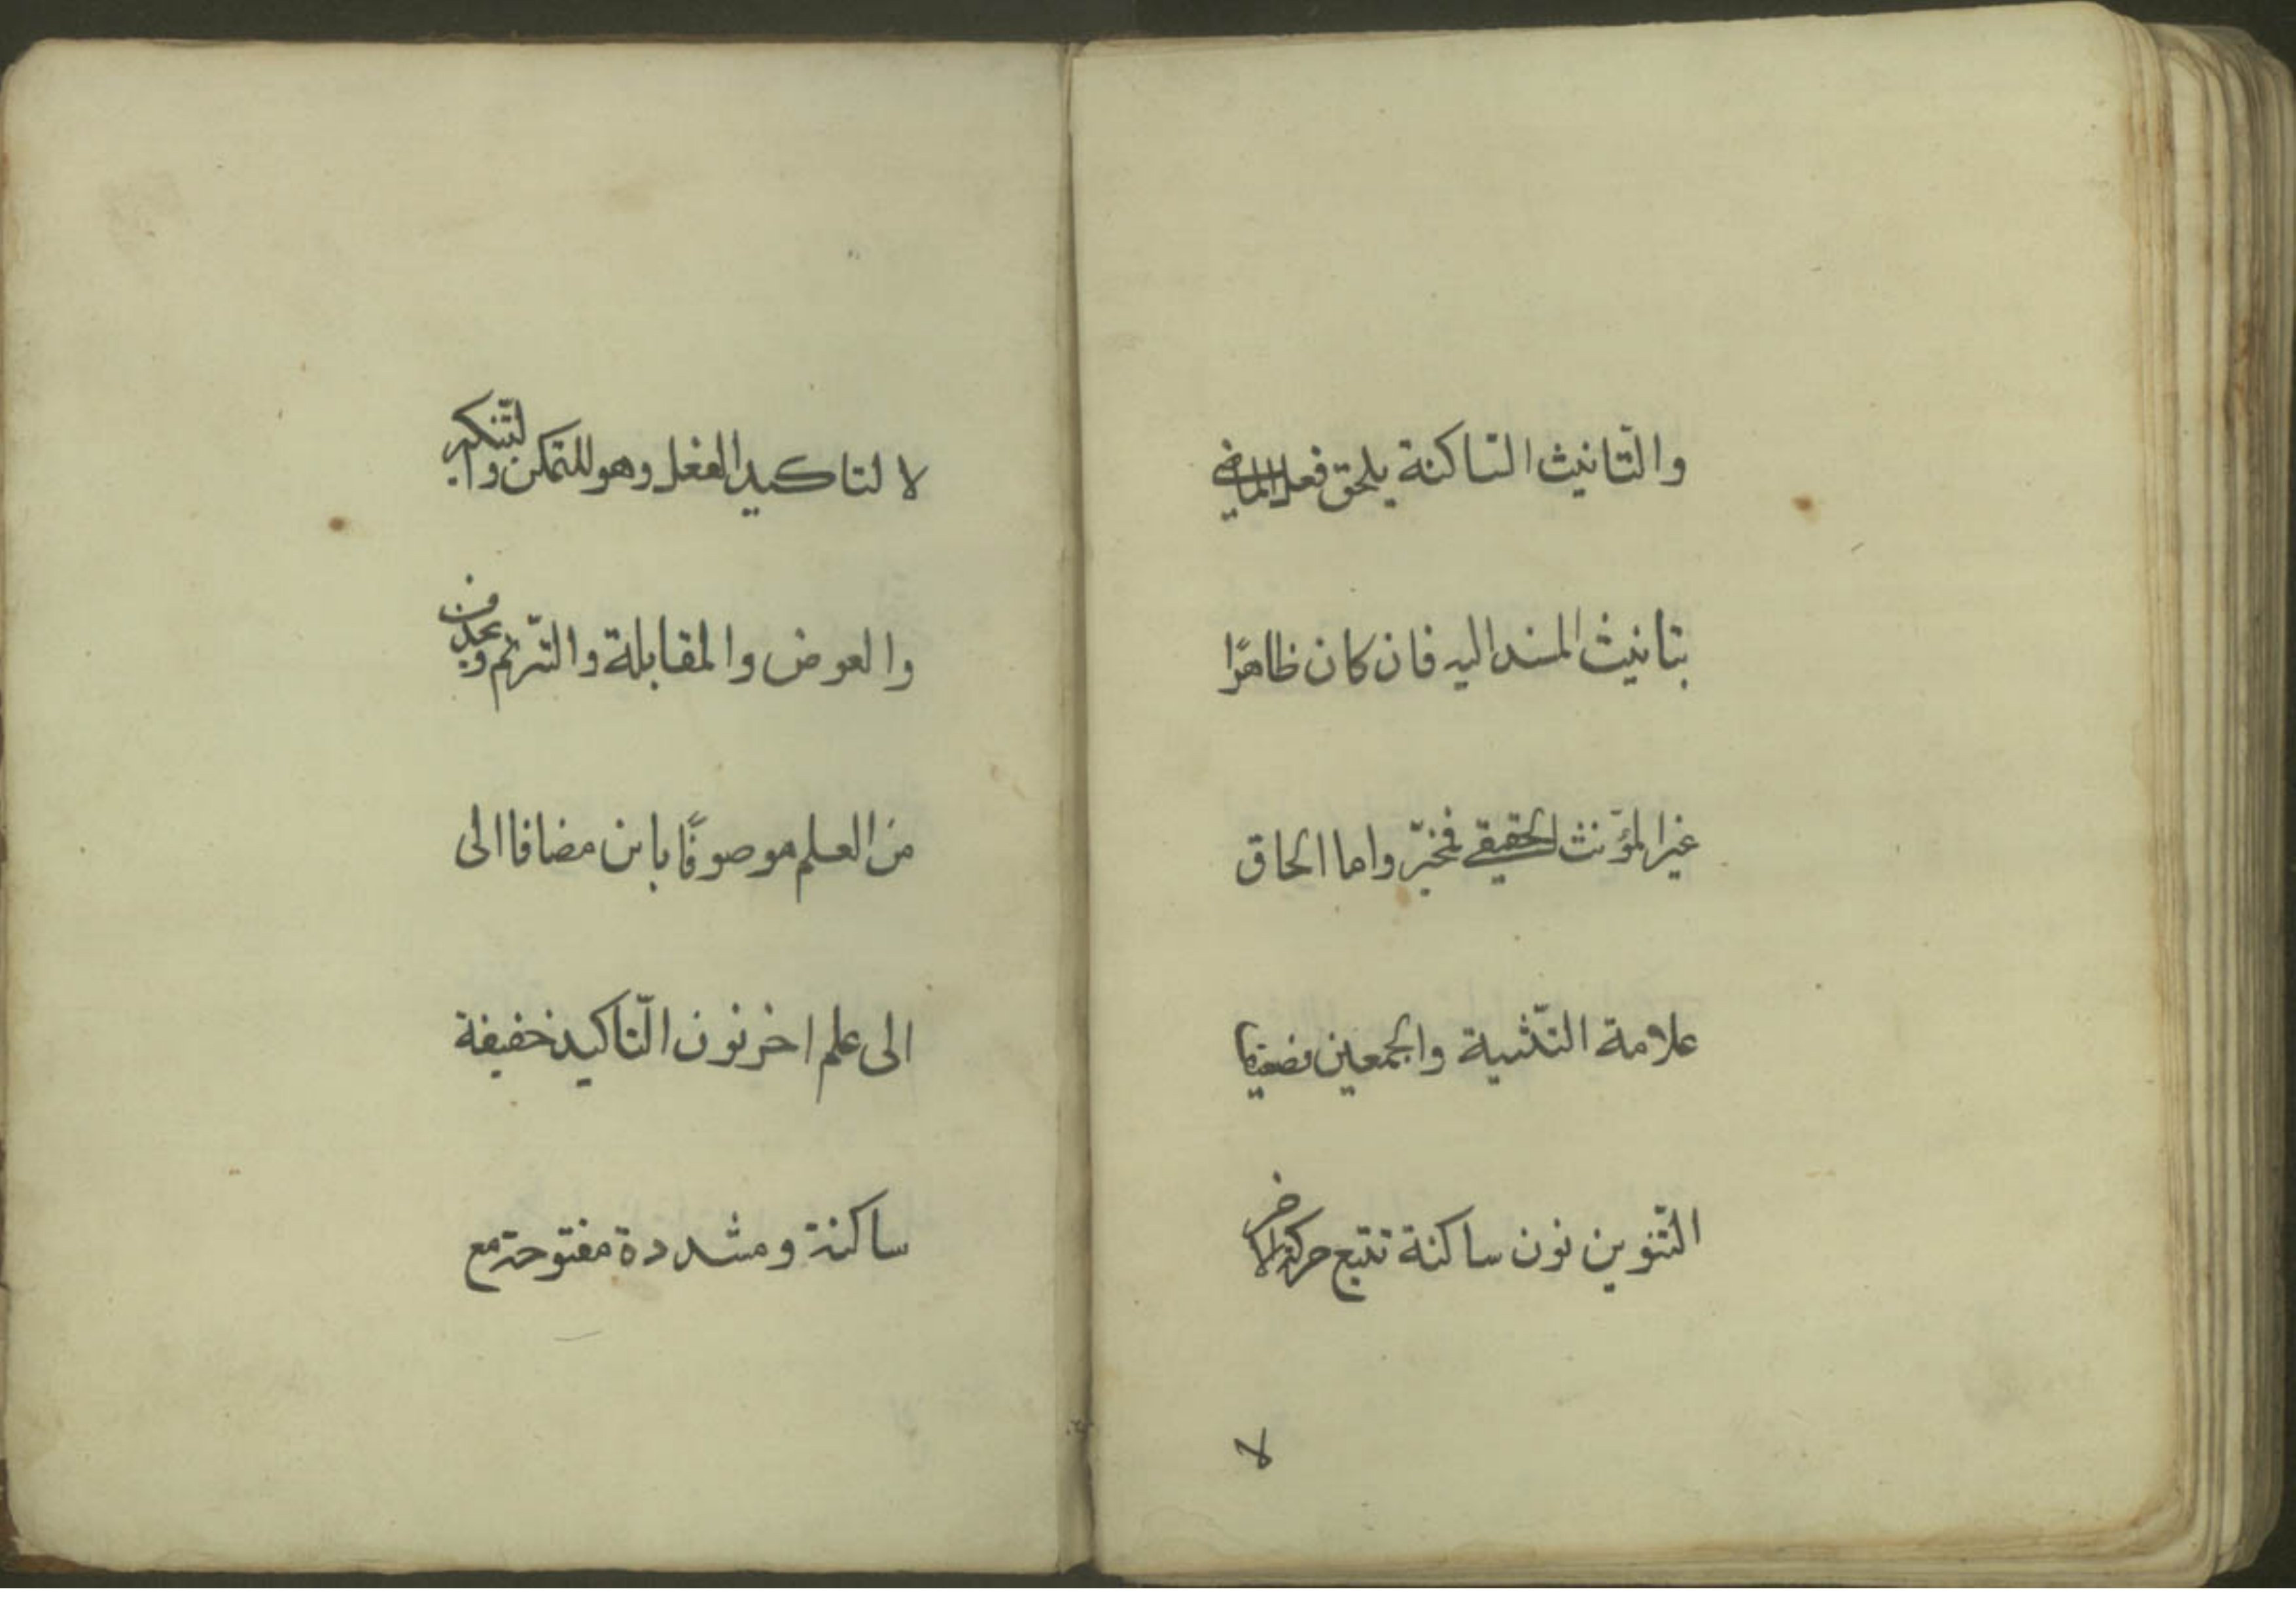 والتّانيث التاكنة يلحق فعل الماضي
بتانيث المسند اليه فان كان ظاهرًا
غير المؤنث الحقيقي فمخيّر واما الحاق
علامة التّثنية والجمعين فضعيف
التّنوين نون ساكنة تتبع حركة الاخر
لا
لا لتاكيد الفعل وهو للتمكن والتّنكير
والعوض والمقابلة والتّرنّم ويحذف
من العلم موصوفًا بابن مضافا الى
الى علم اخر نون التّاكيد خفيفة
ساكنة ومشددة مفتوحة مع